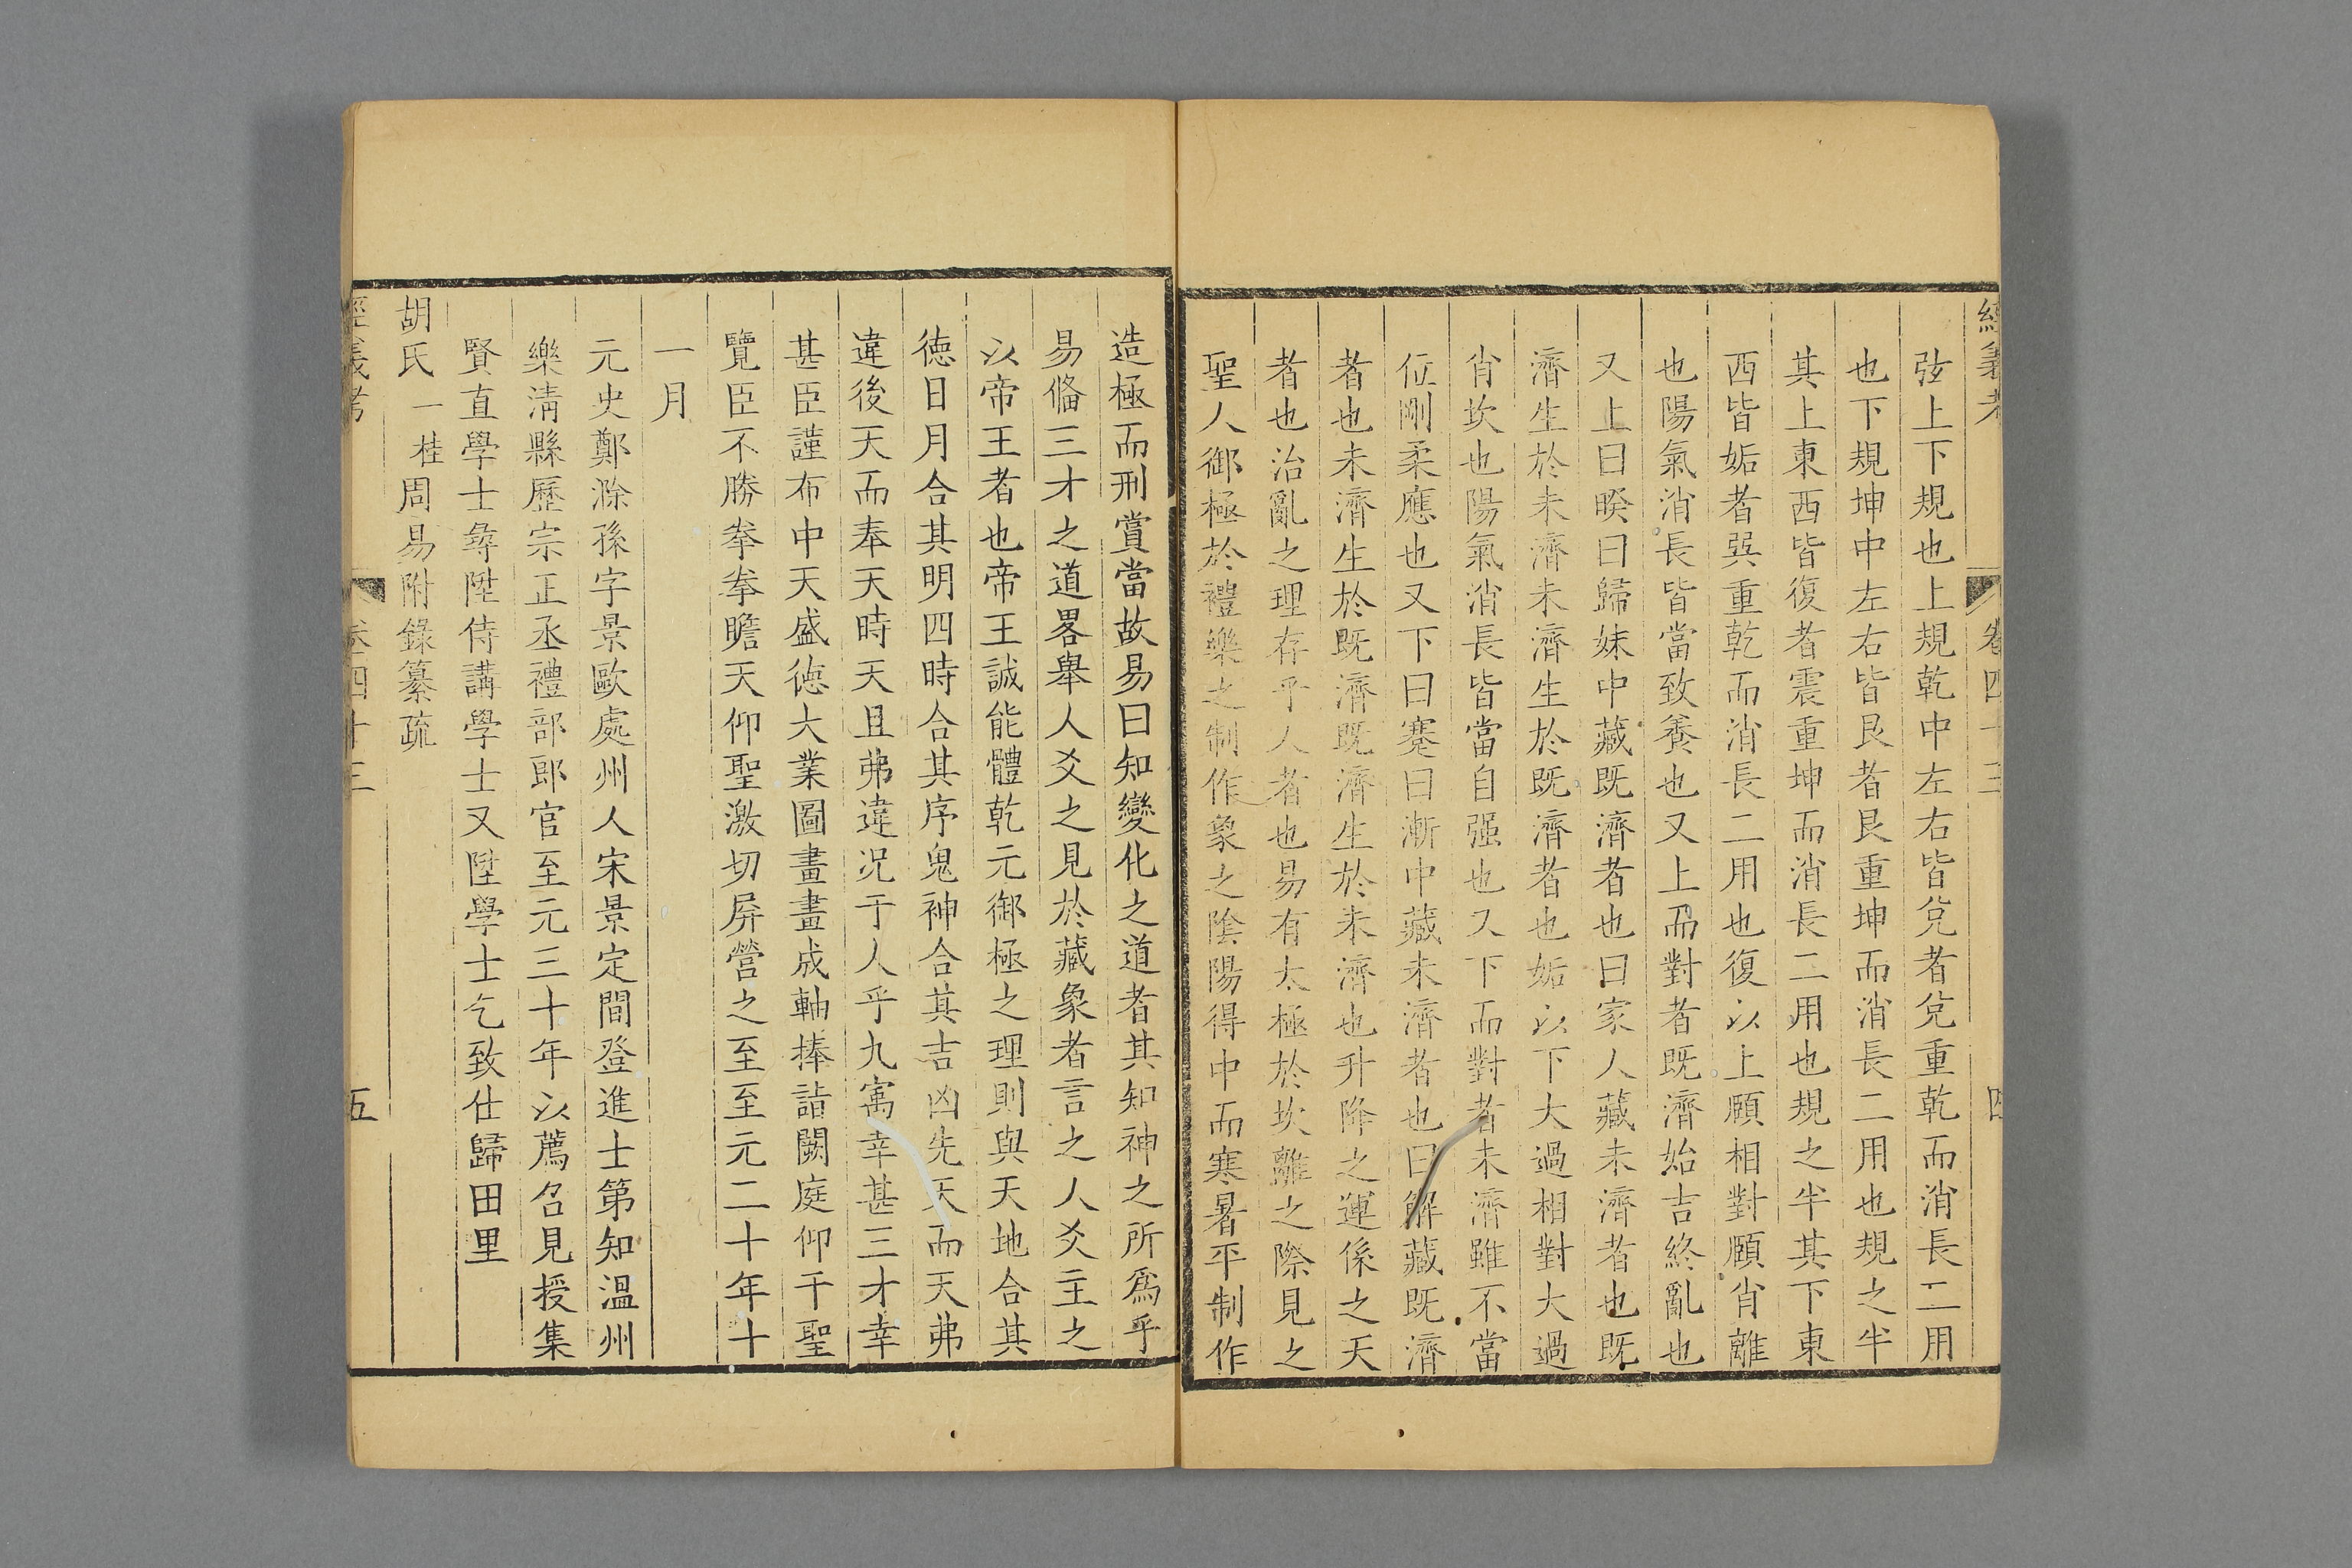 經義考 卷四十三 四
弦上下規也上規乾中左右皆兌者兌重乾而消長二用
也下規坤中左右皆艮者艮重坤而消長二用也規之半
其上東西皆復者震重坤而消長二用也規之半其下東
西皆姤者巽重乾而消長二用也復以上頤相對頤肖離
也陽氣消長皆當致養也又上而對者既濟始吉終亂也
又上曰睽曰歸妹中藏既濟者也曰家人藏未濟者也既
濟生於未濟未濟生於既濟者也姤以下大過相對大過
肖坎也陽氣消長皆當自强也又下而對者未濟雖不當
位剛柔應也又下曰蹇曰漸中藏未濟者也曰解藏既濟
者也未濟生於既濟既濟生於未濟也升降之運係之天
者也治亂之理存乎人者也易有太極於坎離之際見之
聖人御極於禮樂之制作象之陰陽得中而寒暑平制作
造極而刑賞當故易曰知變化之道者其知神之所爲乎
易偹三才之道畧舉人爻之見於藏象者言之人爻主之
以帝王者也帝王誠能體乾元御極之理則與天地合其
徳日月合其明四時合其序鬼神合其吉凶先天而天弗
違後天而奉天時天且弗違况于人乎九寓幸甚三才幸
甚臣謹布中天盛徳大業圖畫畫成軸捧詣闕庭仰干聖
覽臣不勝拳拳瞻天仰聖激切屏營之至至元二十年十
一月
元史鄭滁孫字景歐處州人宋景定間登進士第知溫州
樂淸縣歷宗正丞禮部郎官至元三十年以薦召見授集
賢直學士尋陞侍講學士又陞學士乞致仕歸田里
胡氏一桂周易附錄纂疏
經義考 卷四十三 五